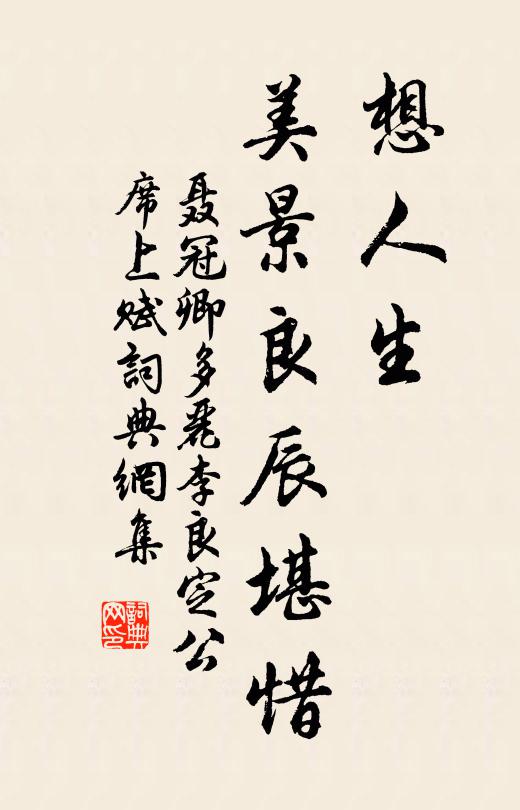 想人生
美景良辰堪惜
聂冠卿多麗李良定公
席上赋詞典網集
詞典网印